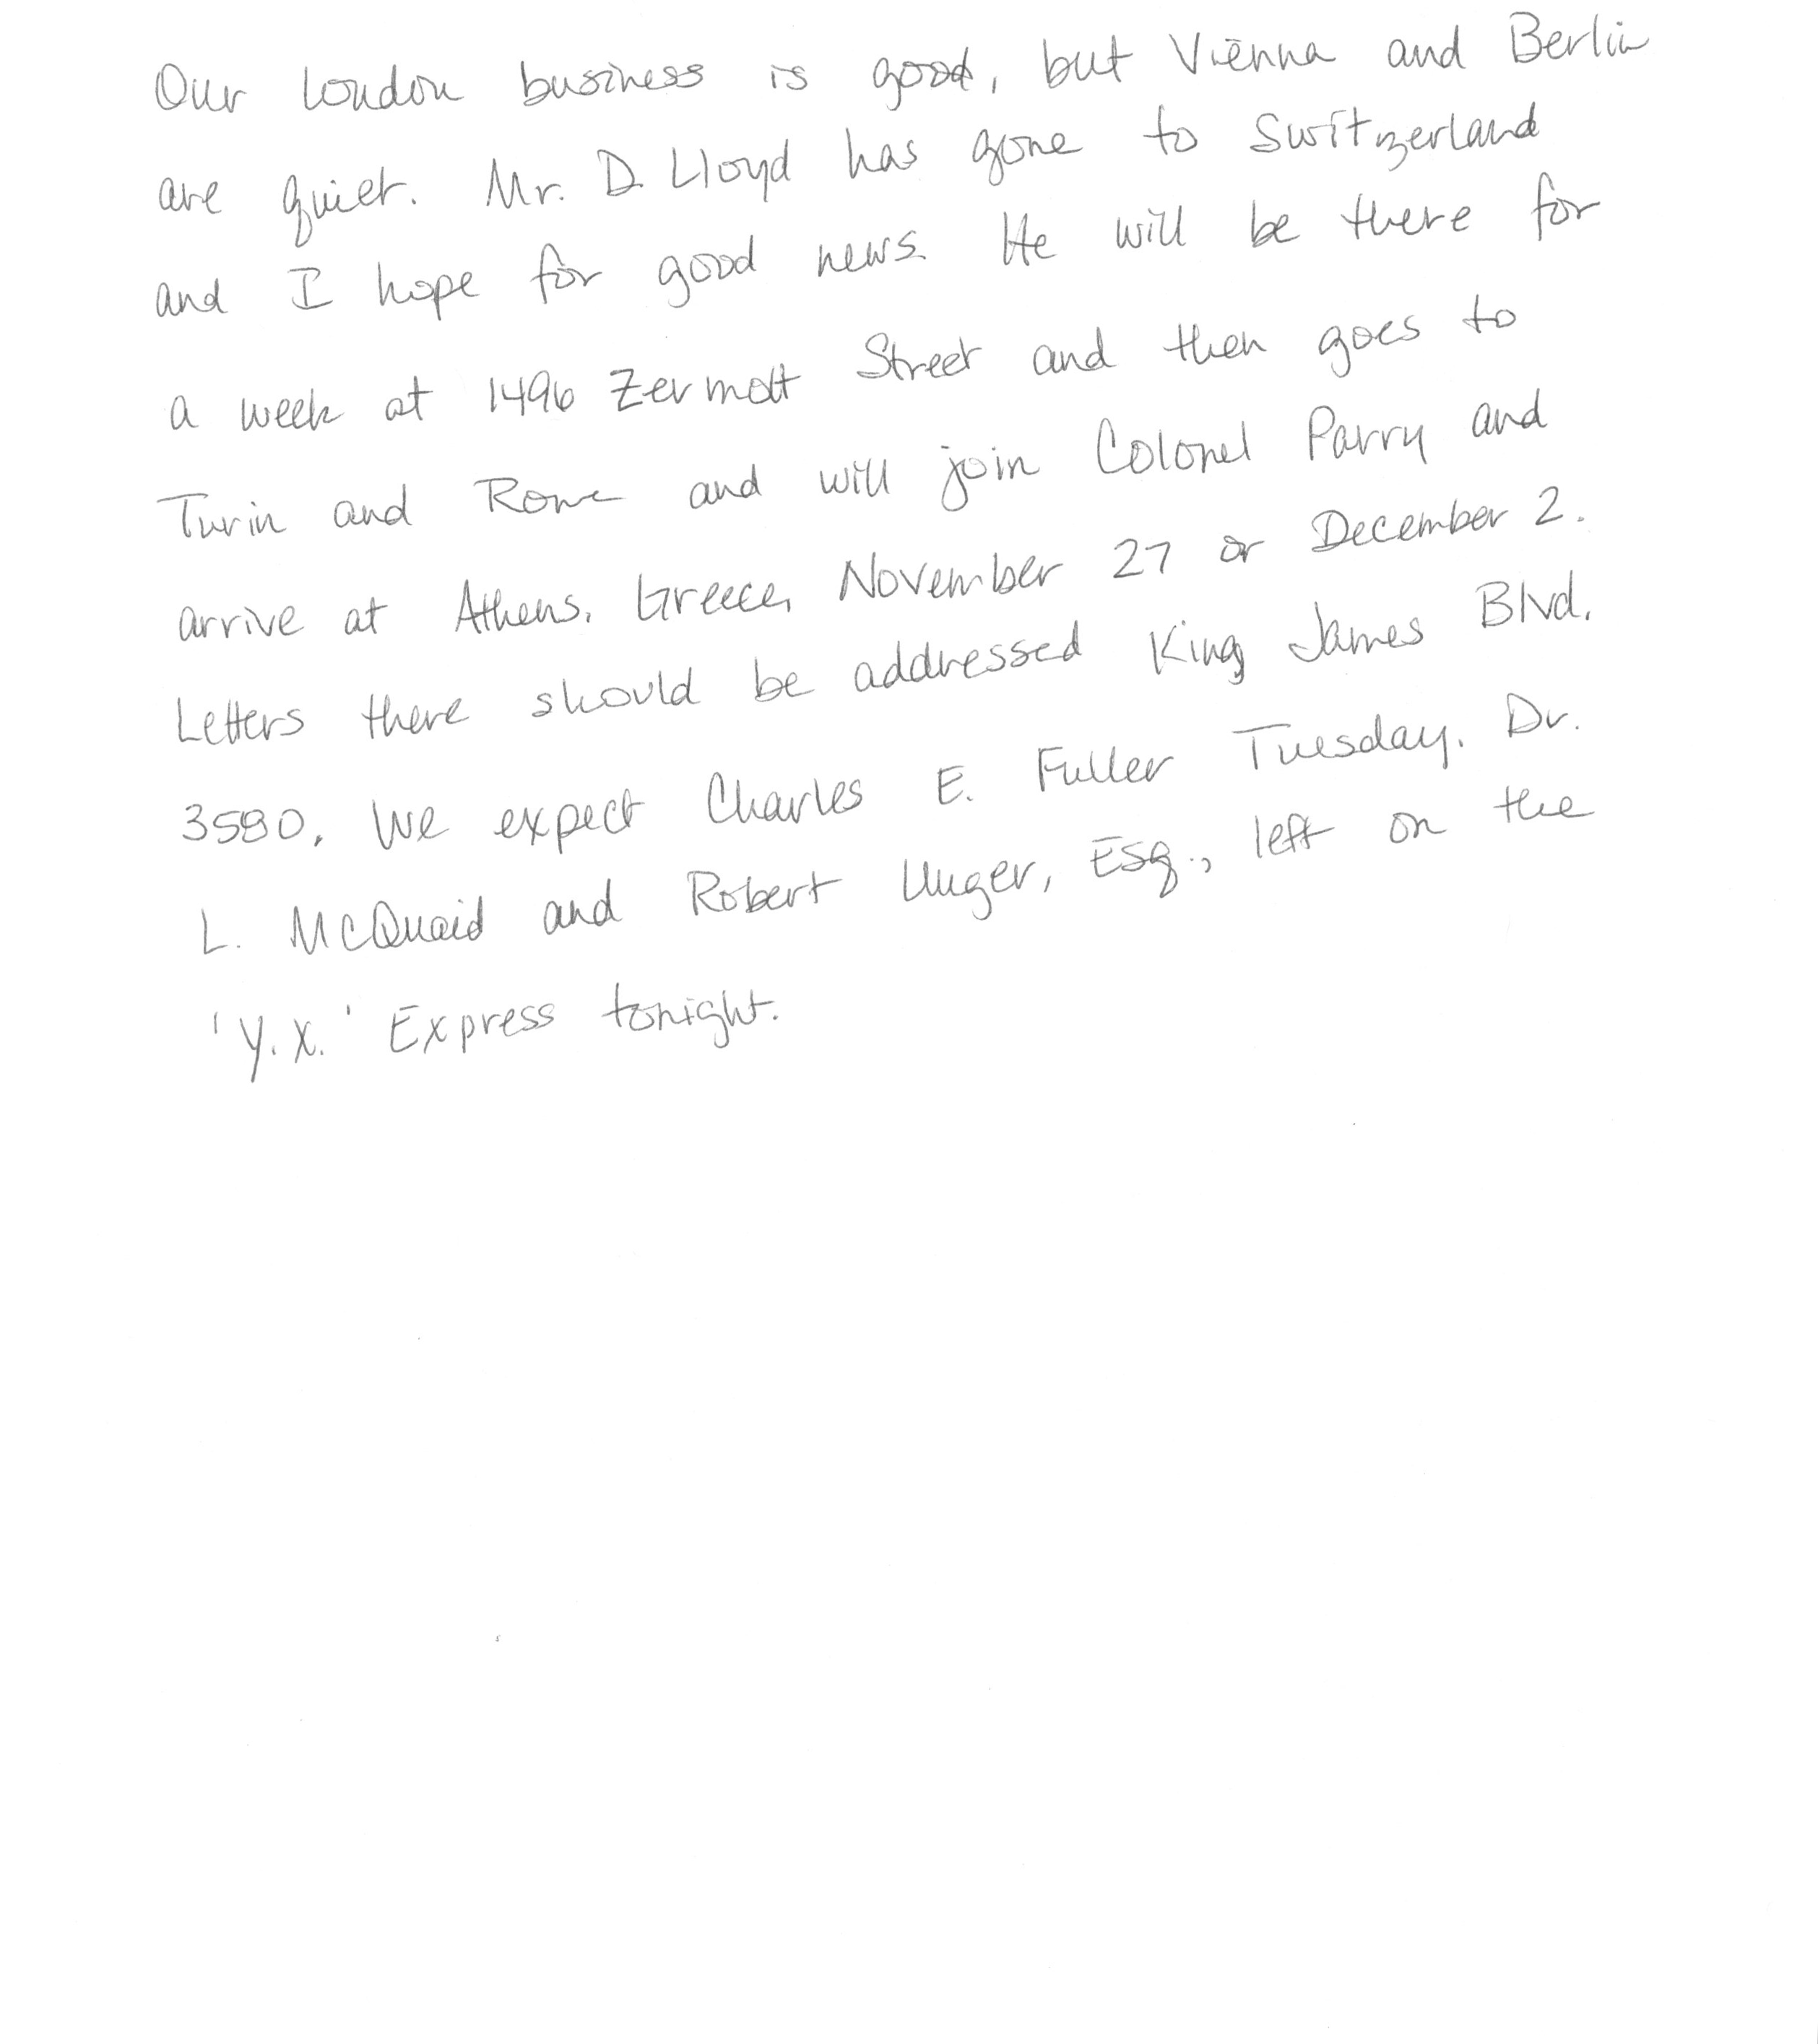 Our London business is good, but Vienna and Berlin
are quiet. Mr. D. Lloyd has gone to Switzerland
and I hope for good news. He will be there for
a week at 1496 Zermott Street and then goes to
Turin and Rome and will join Colonel Parry and
arrive at Athens, Greece, November 27 or December 2.
Letters there should be addressed King James Blvd.
3580. We expect Charles E. Fuller Tuesday. Dr.
L. McQuaid and Robert Unger, Esq., left on the
'Y.X.' Express tonight.